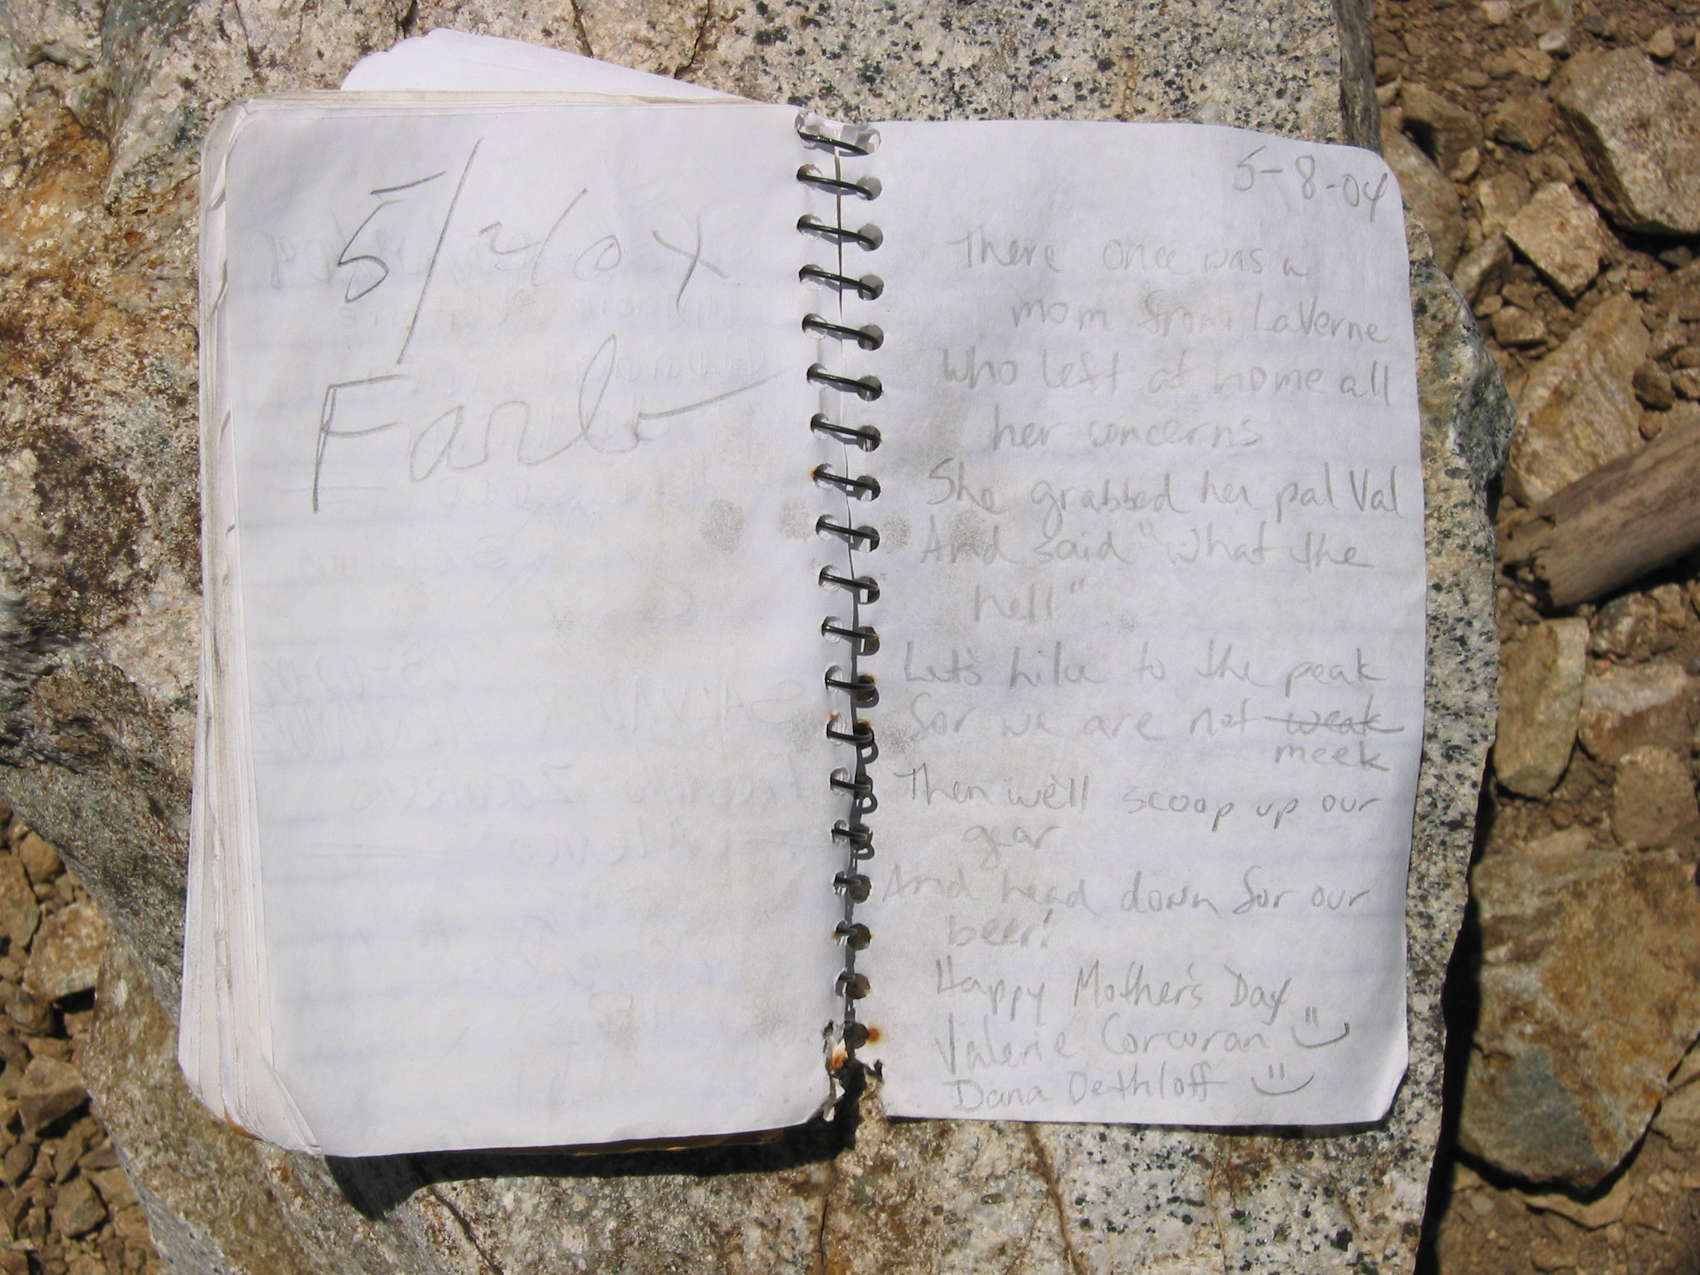 5/2/04
5-8-04
There once was a
mom from LaVerne
Who left at home all
her concerns
She grabbed her pal Val
And said "what the
hell"
Let's hike to the peak
for we are not weak
meek
Then we'll scoop up our
gear
And head down for our
beer!
Happy Mother's Day
Valerie Corcoran
Dana Dethloff